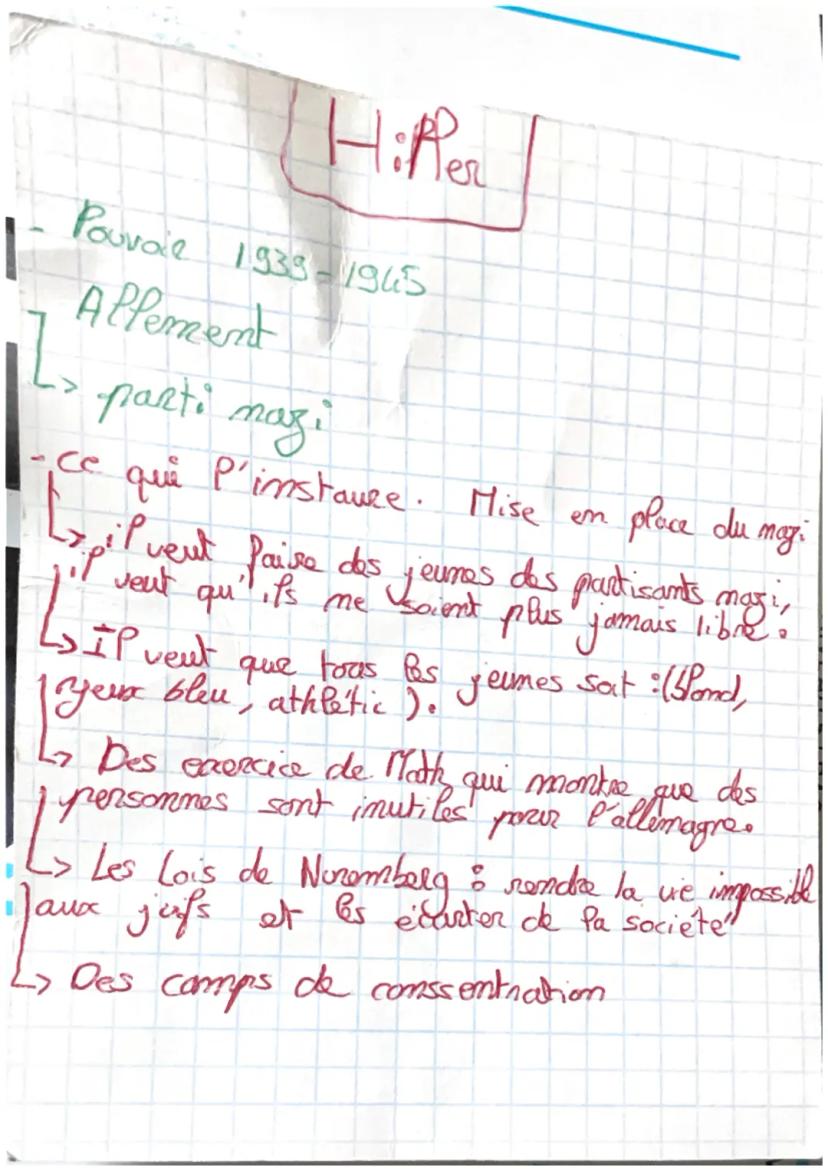 Hitler
- Pouvoir 1939-1945
Allement
↳ parti nazi
- Ce qui l'instaure. Mise en place du nazi
↳ il veut faire des jeunes des partisants nazi,
il veut qu'ils ne soient plus jamais libre.
↳ Il veut que tous les jeunes soit : (blond,
yeux bleu, athlétic).
↳ Des exercice de Math qui montre que des
personnes sont inutiles pour l'allemagne.
↳ Les Lois de Nuremberg : rendre la vie impossible
aux juifs et les écarter de la société
↳ Des camps de conssentration